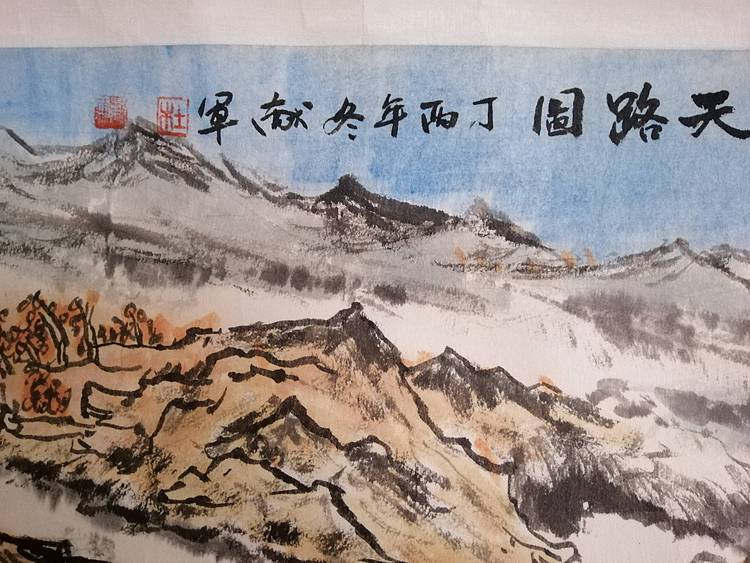 天路圖 丁酉年冬 献軍
杜